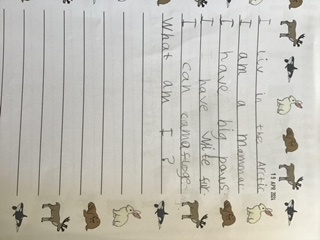 I liv in the Arctic
I am a mammal
I have big paws
I have wite fur
I can camaflage
What am I ?
15 APR 2024